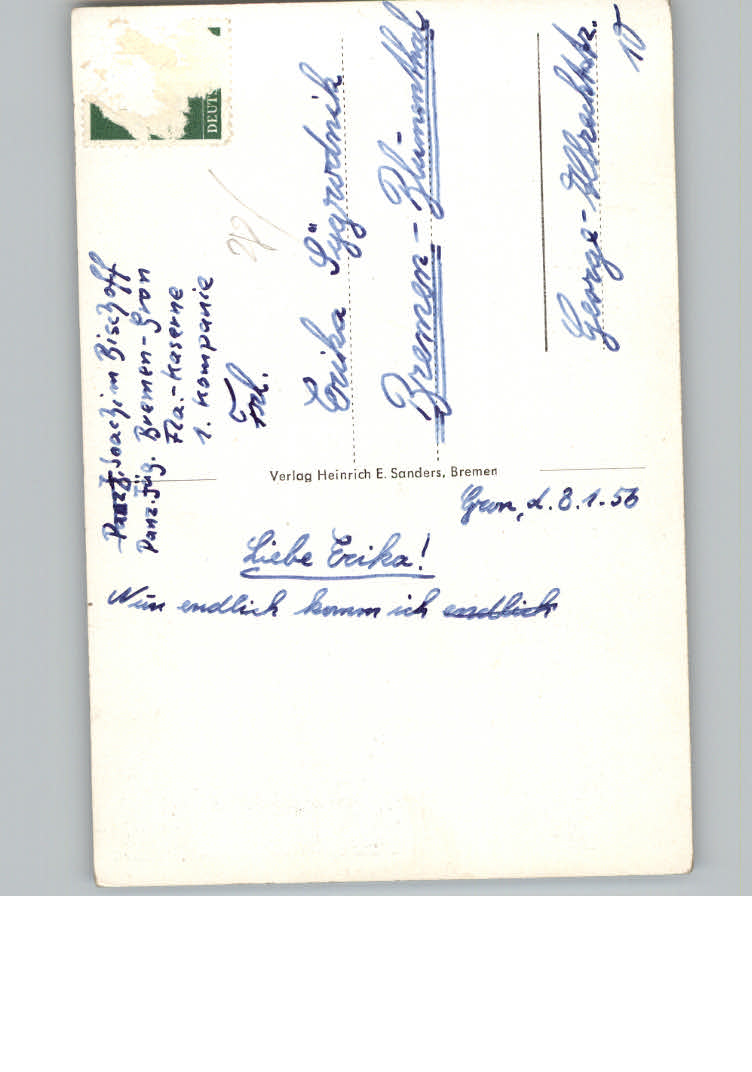 DEUTS
Panz.J. Joachim Bischoff
Panz.Jäg. Bremen-Gron
Fla.-Kaserne
1. Kompanie
Frl.
Erika
Bremen-Blumenthal
George-Albrechtstr.
10
Verlag Heinrich E. Sanders, Bremen
Gron, d. 8.1.56
Liebe Erika!
Nun endlich komm ich endlich